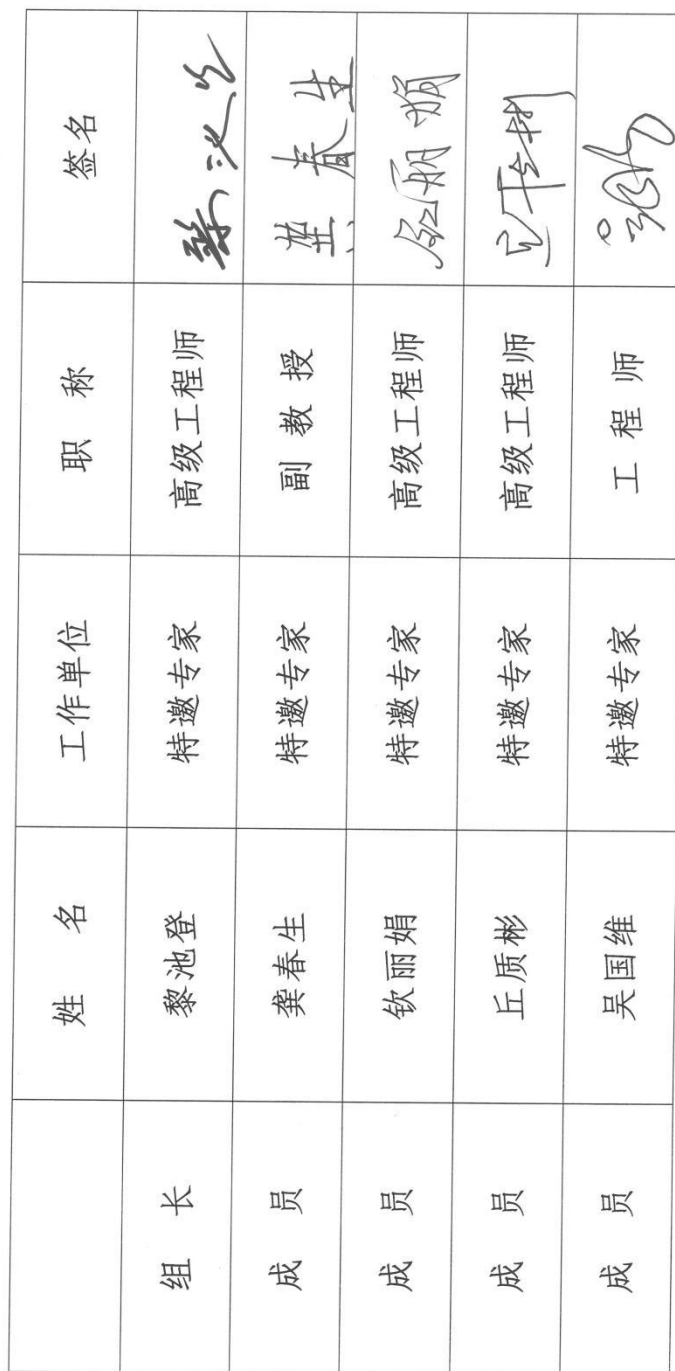 姓 名 工作单位 职 称 签名
组 长 黎池登 特邀专家 高级工程师
成 员 龚春生 特邀专家 副教授 龚春生
成 员 钦丽娟 特邀专家 高级工程师 钦丽娟
成 员 丘质彬 特邀专家 高级工程师
成 员 吴国维 特邀专家 工程师